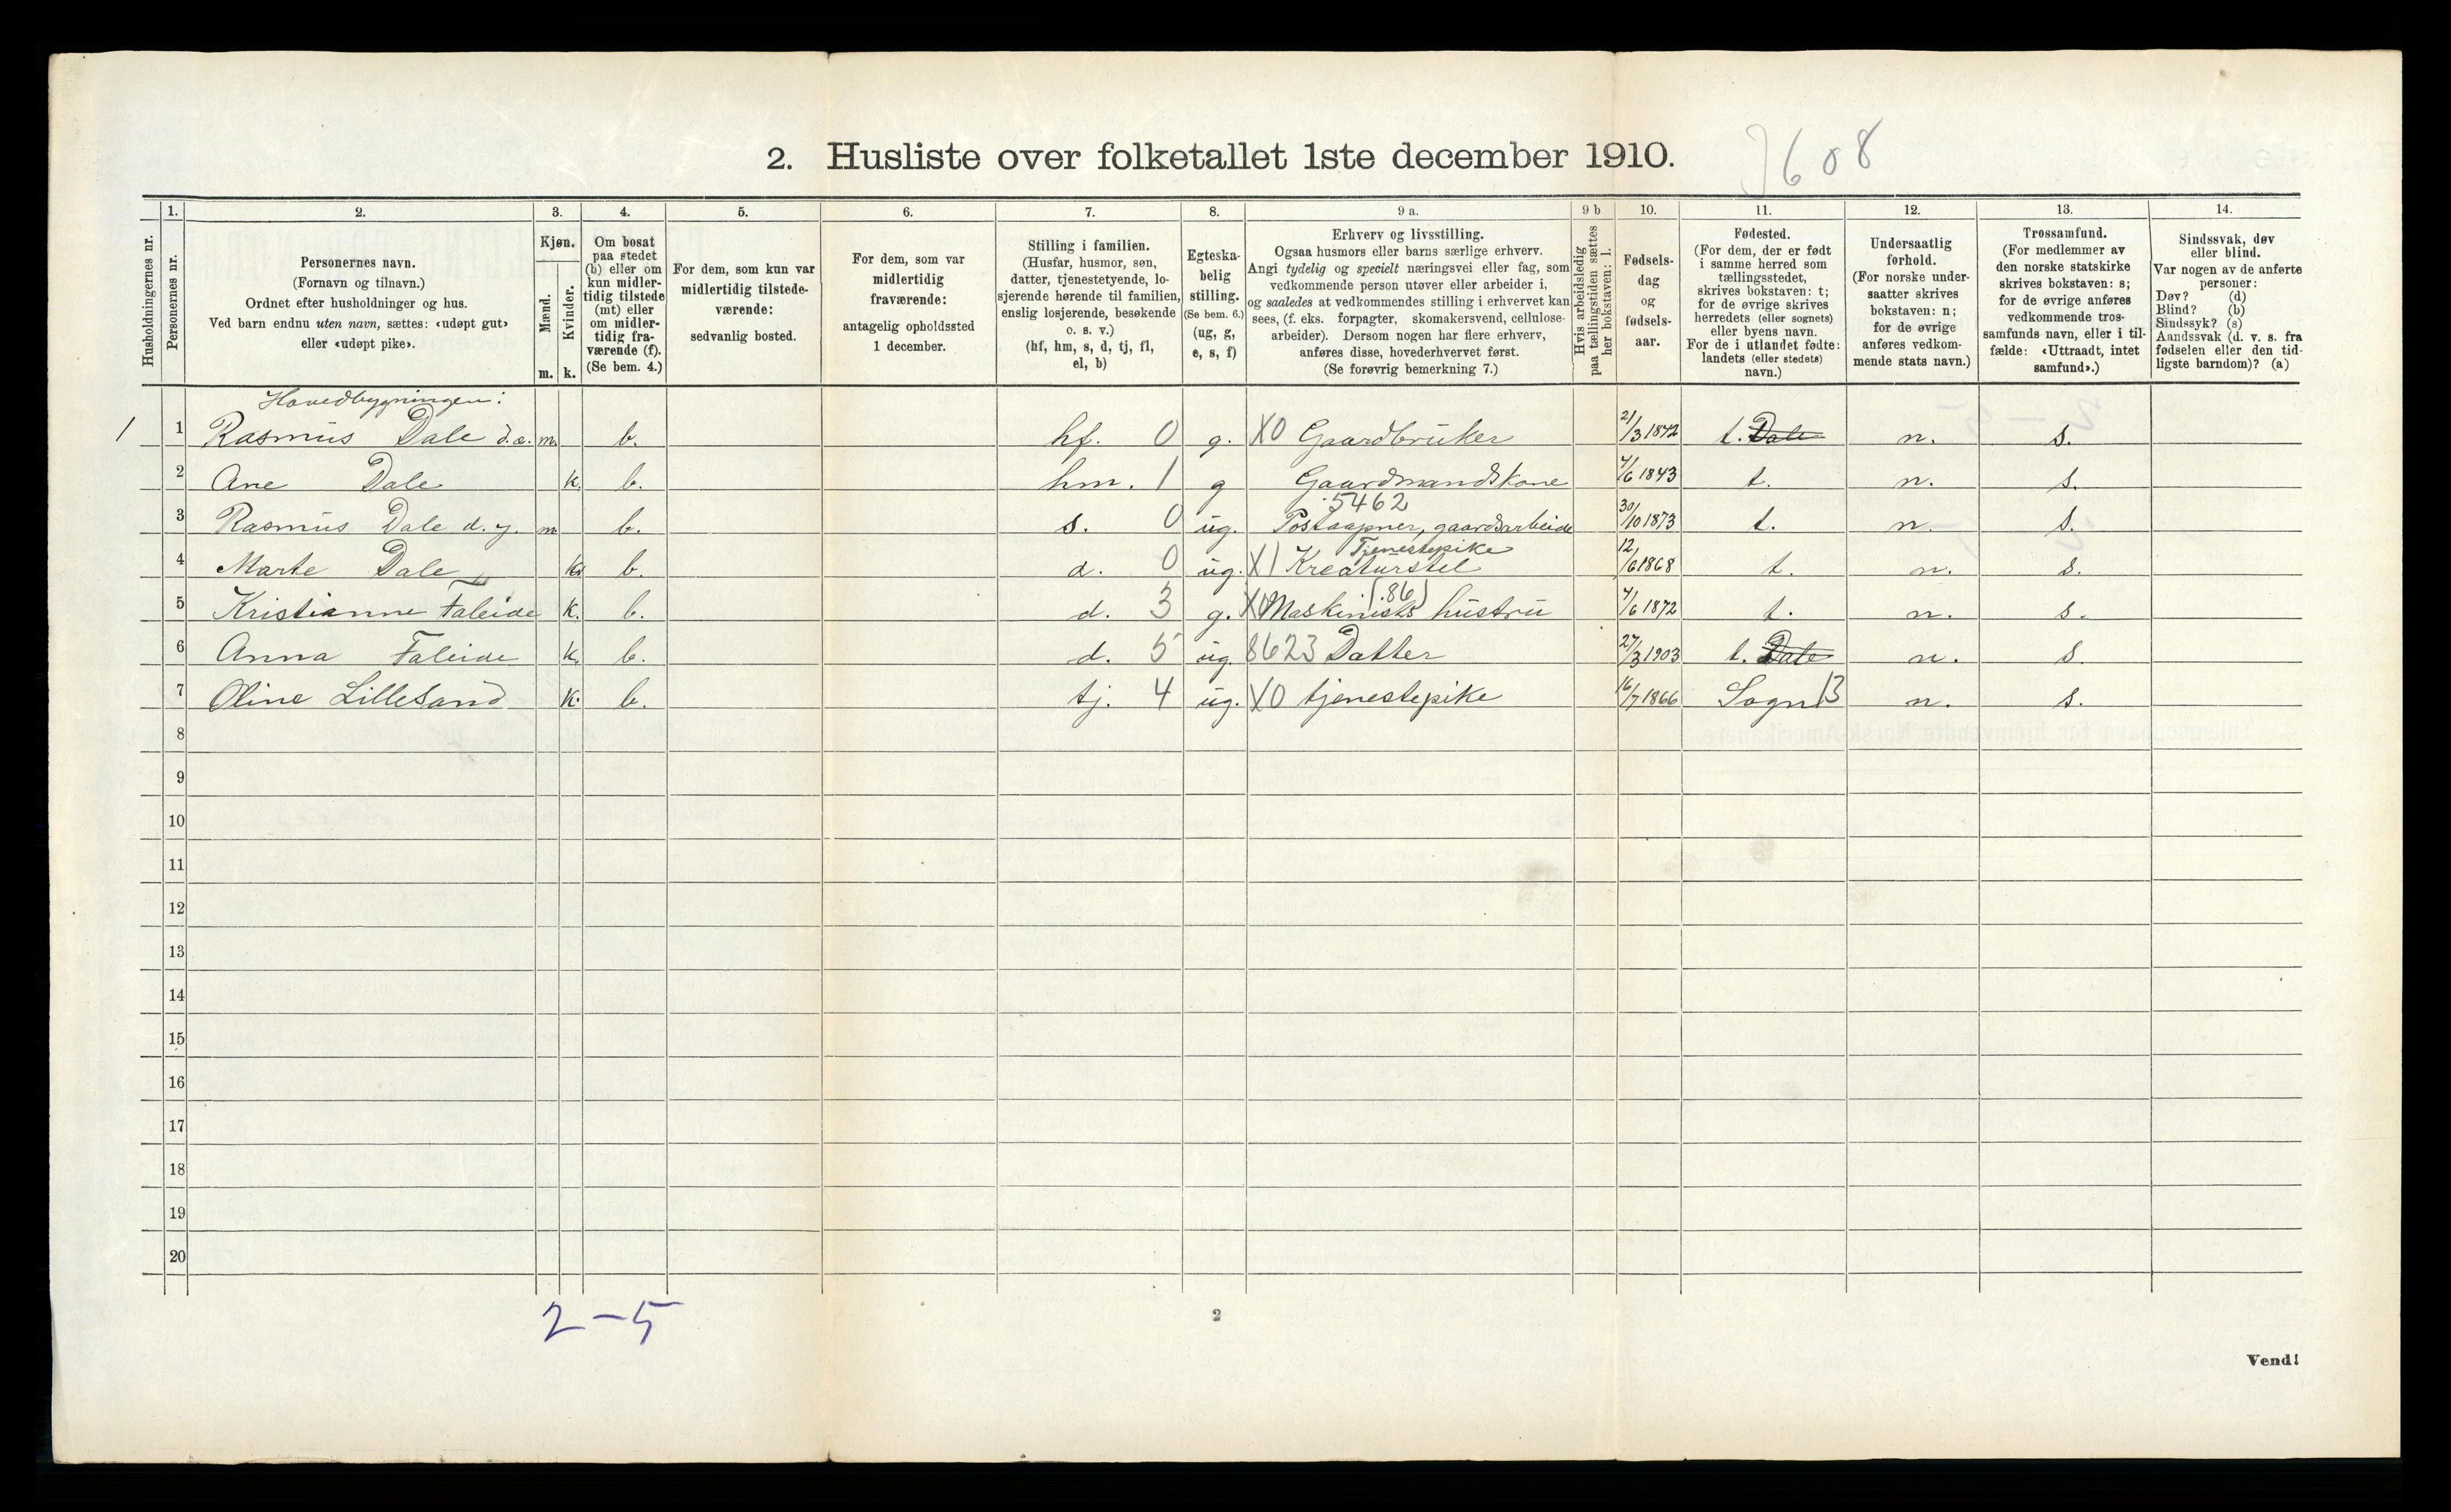 2. Husliste over folketallet 1ste december 1910.
608
Husholdningernes nr.
1.
Personernes nr.
2.
Personernes navn.
(Fornavn og tilnavn.)
Ordnet efter husholdninger og hus.
Ved barn endnu uten navn, sættes: «udøpt gut»
eller «udøpt pike».
3.
Kjøn.
Mænd.
Kvinder.
m. k.
4.
Om bosat
paa stedet
(b) eller om
kun midler-
tidig tilstede
(mt) eller
om midler-
tidig fra-
værende (f).
(Se bem. 4.)
5.
For dem, som kun var
midlertidig tilstede-
værende:
sedvanlig bosted.
6.
For dem, som var
midlertidig
fraværende:
antagelig opholdssted
1 december.
7.
Stilling i familien.
(Husfar, husmor, søn,
datter, tjenestetyende, lo-
sjerende hørende til familien,
enslig losjerende, besøkende
o. s. v.)
(hf, hm, s, d, tj, fl,
el, b)
8.
Egteska-
belig
stilling.
(Se bem. 6.)
(ug, g,
e, s, f)
9 a.
Erhverv og livsstilling.
Ogsaa husmors eller barns særlige erhverv.
Angi tydelig og specielt næringsvei eller fag, som
vedkommende person utøver eller arbeider i,
og saaledes at vedkommendes stilling i erhvervet kan
sees, (f. eks. forpagter, skomakersvend, cellulose-
arbeider). Dersom nogen har flere erhverv,
anføres disse, hovederhvervet først.
(Se forøvrig bemerkning 7.)
9 b
Hvis arbeidsledig
paa tællingstiden sættes
her bokstaven: l.
10.
Fødsels-
dag
og
fødsels-
aar.
11.
Fødested.
(For dem, der er født
i samme herred som
tællingsstedet,
skrives bokstaven: t;
for de øvrige skrives
herredets (eller sognets)
eller byens navn.
For de i utlandet fødte:
landets (eller stedets)
navn.)
12.
Undersaatlig
forhold.
(For norske under-
saatter skrives
bokstaven: n;
for de øvrige
anføres vedkom-
mende stats navn.)
13.
Trossamfund.
(For medlemmer av
den norske statskirke
skrives bokstaven: s;
for de øvrige anføres
vedkommende tros-
samfunds navn, eller i til-
fælde: «Uttraadt, intet
samfund».)
14.
Sindssvak, døv
eller blind.
Var nogen av de anførte
personer:
Døv? (d)
Blind? (b)
Sindssyk? (s)
Aandssvak (d. v. s. fra
fødselen eller den tid-
ligste barndom)? (a)
Hovedbygningen:
1 1 Rasmus Dale d.æ. m. b. hf. 0 g. X0 Gaardbruker 21/3 1842 t. Dale n. s.
2 Ane Dale k. b. hm. 1 g Gaardmandskone 4/6 1843 t. n. s.
5462
3 Rasmus Dale d. y. m b. s. 0 ug. Postaapner, gaardsarbeide 30/10 1873 t. n. s.
Tjenestepike
4 Marte Dale k b. d. 0 ug. X1 Kreaturstel 12/6 1868 t. n. s.
(.86)
5 Kristianne Faleide k. b. d. 3 g. X0 Maskinists hustru 4/6 1872 t. n. s.
6 Anna Faleide k. b. d. 5 ug. 8623 Datter 27/3 1903 t. Dale n. s.
7 Oline Lillesand k. b. tj. 4 ug. X0 tjenestepike 16/7 1866 Sogn 13 n. s.
8
9
10
11
12
13
14
15
16
17
18
19
20
2-5
2
Vend!